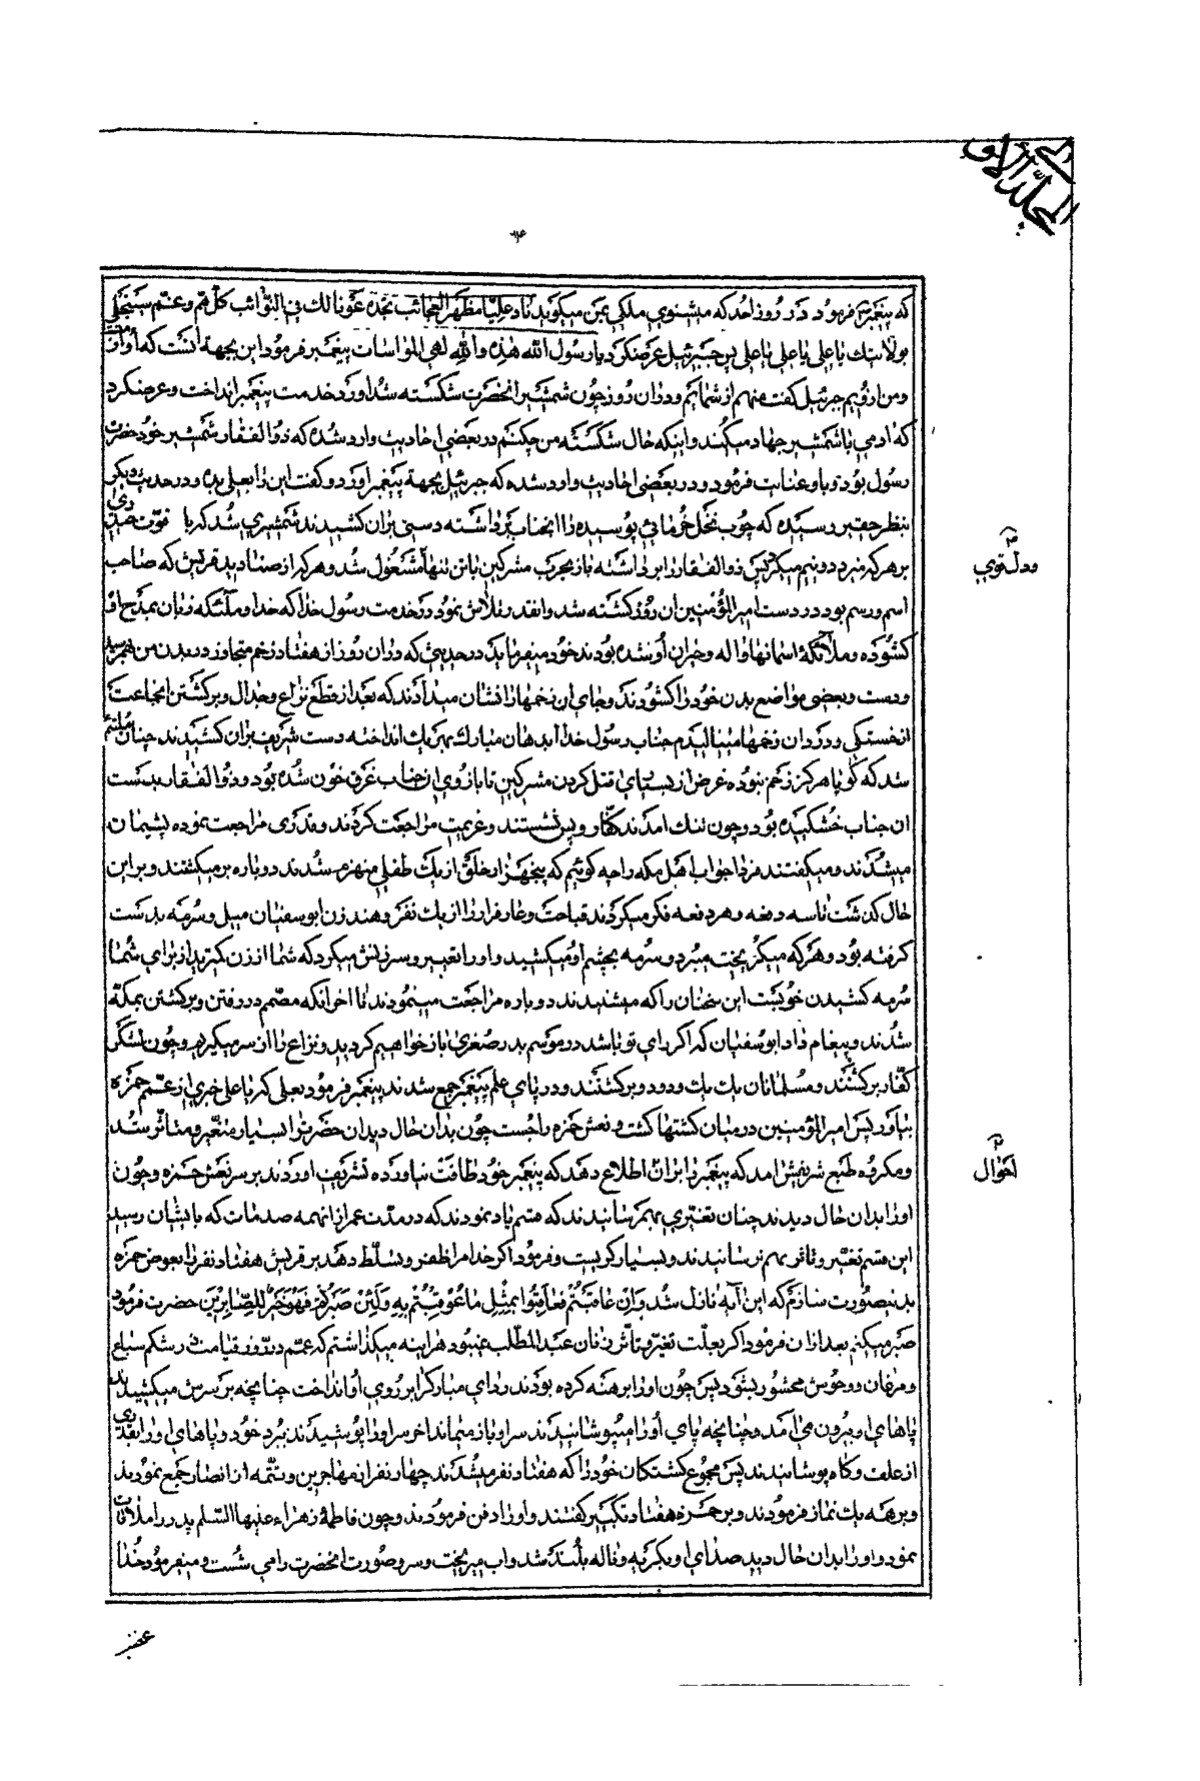 المجلّد الاوّل
۶۴
که پیغمبر فرمود در روز احد که میشنوی ملکی بمن میکوید ناد علیّاً مظهر العجائب تجده عونا لك فی النّوائب کلّ همّ و غمّ سینجلی
بولایتك یا علی یا علی یا علی پس جبرئیل عرضکرد یا رسول الله هذه والله لهی المواسات پیغمبر فرمود این بجهة آنست که او از منست
و من ازویم جبرئیل کفت منهم از شمایم و دران روز چون شمشیر انحضرت شکسته شد اورد خدمت پیغمبر انداخت و عرضکرد
که ادمی با شمشیر جهاد میکند و اینکه حال شکسته من چکنم در بعضی احادیث وارد شده که ذو الفقار شمشیر خود حضرت
رسول بود و باو عنایت فرمود و در بعضی احادیث وارد شده که جبرئیل بجهة پیغمبر اورد و کفت این را بعلی بده و در حدیث دیکر
بنظر حقیر رسیده که چوب نخل خرمائی پوسیده را انجناب برداشته دستی بران کشیدند شمشیری شد که با قوّت حیدری
بر هر که میزد دو نیم میکرد پس ذو الفقار را برداشته باز بحرب مشرکین با تن تنها مشغول شد و هر که از صنادید قریش که صاحب
اسم و رسم بود در دست امیر المؤمنین ان روز کشته شد و انقدر تلاش نمود در خدمت رسول خدا که خدا و ملئکه زبان بمدح او
کشوده و ملائکهٔ اسمانها واله و حیران او شده بودند خود میفرماید در حدیثی که دران روز از هفتاد زخم متجاوز در بدن من بهم رسید
و دست و بعضی مواضع بدن خود را کشودند و جای ان زخمها را نشان میدادند که بعد از قطع نزاع و جدال و برکشتن انجماعت
از خستکی و درد ان زخمها مینالیدم جناب رسول خدا اب دهان مبارك بهر یك انداخته دست شریف بران کشیدند چنان ملتئم
شد که کویا هرکز زخم نبوده غرض از بسیاری قتل کردن مشرکین تا بازوی ان جناب غرق خون شده بود و ذو الفقار بدست
ان جناب خشکیده بود و چون تنك امدند کفّار و پس نشستند و عزیمت مراجعت کردند و قدری مراجعت نموده پشیمان
میشدند و میکفتند فردا جواب اهل مکه را چه کوئیم که پنجهزار خلق از یك طفلی منهزم شدند دوباره بر میکشتند و بر این
حال کذشت تا سه دفعه و هر دفعه فکر میکردند قباحت و عار فرار را از یك نفر و هند زن ابو سفیان میل و سرمه بدست
کرفته بود و هر که میکریخت میبرد و سرمه بچشم او میکشید و او را تعییر و سرزنش میکرد که شما از زن کمترید از برای شما
سرمه کشیدن خوبست این سخنان را که میشنیدند دوباره مراجعت مینمودند تا اخر انکه مصمّم در رفتن و برکشتن بمکّه
شدند و پیغام داد ابو سفیان که اکر رای تو باشد در موسم بدر صغری باز خواهیم کردید و نزاع را از سر میکیریم و چون لشکر
کفّار برکشتند و مسلمانان یك یك و دو دو برکشتند و در پای علم پیغمبر جمع شدند پیغمبر فرمود بعلی که یا علی خبری از عمّم حمزه
بیاور پس امیر المؤمنین در میان کشتها کشت و نعش حمزه را جست چون بدان حال دید ان حضرت را بسیار متغیّر و متاثّر شد
و مکروه طبع شریفش امد که پیغمبر را بران اطلاع دهد که پیغمبر خود طاقت نیاورده تشریف اوردند بر سر نعش حمزه و چون
او را بدان حال دیدند چنان تغیّری بهمرسانیدند که قسم یاد نمودند که در مدّت عمر از انهمه صدمات که بایشان رسید
این قسم تغیّر و تاثر بهم نرسانیدند و بسیار کریست و فرمود اکر خدا مرا ظفر و تسلّط دهد بر قریش هفتاد نفر را بعوض حمزه
بدینصورت سازم که این آیه نازل شد وَ اِن عاقَبتُم فَعاقِبُوا بِمِثلِ ما عُوقِبتُم بِهِ وَ لَئِن صَبَرتُم لَهُوَ خَیرٌ لِلصّابِرینَ حضرت فرمود
صبر میکنم بعد ازان فرمود اکر بعلّت تغیّر و تاثّر زنان عبد المطّلب نمیبود هراینه میکذاشتم که عمّم در روز قیامت در شکم سباع
و مرغان و وحوش محشور بشود پس چون او را برهنه کرده بودند ردای مبارك را بر روی او انداخت چنانچه بر سرش میکشیدند
پاهای او بیرون می امد و چنانچه پای او را میپوشانیدند سر او باز میماند اخر سر او را پوشیدند ببرد خود و پاهای او را بقدری
از علف و کاه پوشانیدند پس مجموع کشتکان خود را که هفتاد نفر میشدند چهار نفر از مهاجرین و تتمّه از انصار جمع نمودند
و بر همه یك نماز فرمودند و بر حمزه هفتاد تکبیر کفتند و او را دفن فرمودند و چون فاطمهٔ زهراء علیها السّلم پدر را ملاقات
نمود و او را بدان حال دید صدای او بکریه و ناله بلند شد و اب میریخت و سر و صورت انحضرت را می شست و میفرمود خدا
در
احوال
غضب